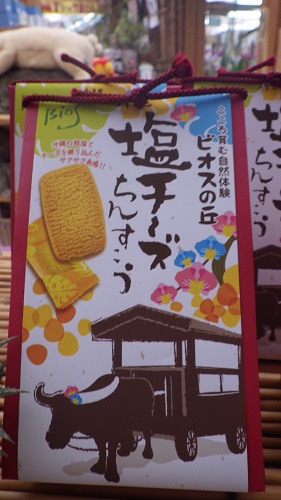 Bios
こころ育む自然体験
ビオスの丘
塩チーズ
ちんすこう
沖縄の粗塩と
チーズを練り込んだ
サクサク食感!!